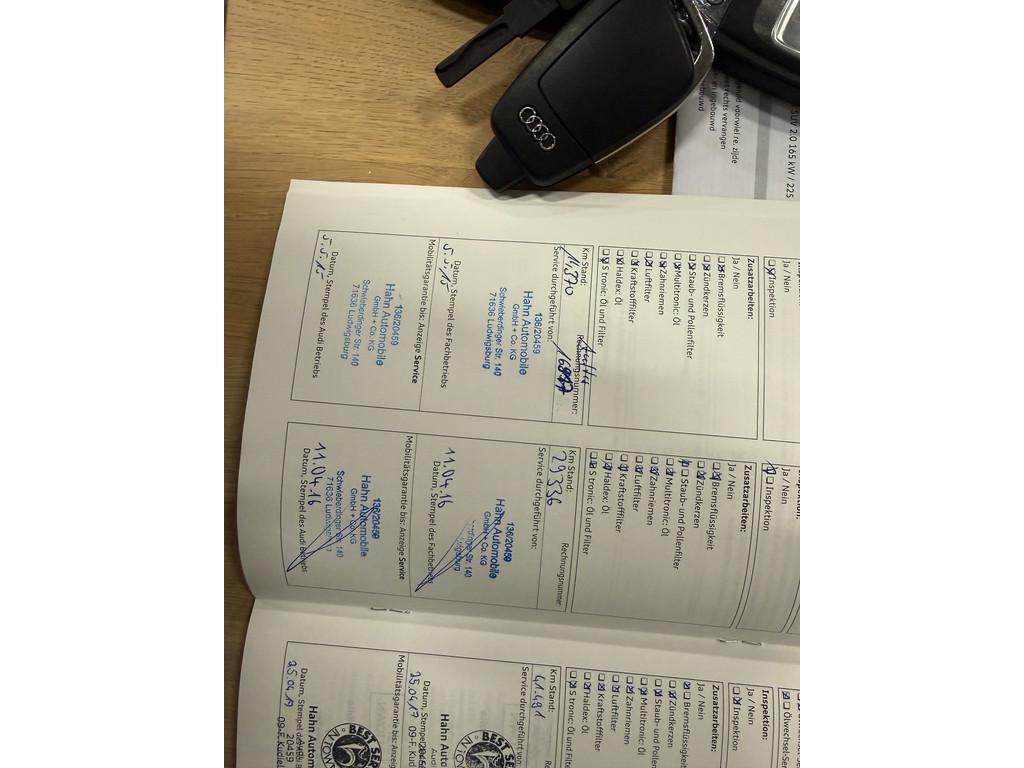 SUV 2.0 165 kW / 225
rechts vervangen
Ja / Nein
Inspektion
Zusatzarbeiten:
Ja / Nein
Bremsflüssigkeit
Zündkerzen
Staub- und Pollenfilter
Multitronic: Öl
Zahnriemen
Luftfilter
Kraftstofffilter
Haldex: Öl
S tronic: Öl und Filter
Km Stand:
Rechnungsnummer:
14,570
Service durchgeführt von:
136/20459
Hahn Automobile
GmbH + Co. KG
Schwieberdinger Str. 140
71636 Ludwigsburg
5.5.15
Datum, Stempel des Fachbetriebs
Mobilitätsgarantie bis: Anzeige Service
136/20459
Hahn Automobile
GmbH + Co. KG
Schwieberdinger Str. 140
71636 Ludwigsburg
5.5.15
Datum, Stempel des Audi Betriebs
Ja / Nein
Inspektion
Zusatzarbeiten:
Ja / Nein
Bremsflüssigkeit
Zündkerzen
Staub- und Pollenfilter
Multitronic: Öl
Zahnriemen
Luftfilter
Kraftstofffilter
Haldex: Öl
S tronic: Öl und Filter
Km Stand:
Rechnungsnummer
29336
Service durchgeführt von:
136/20459
Hahn Automobile
GmbH + Co. KG
Str. 140
11.04.16
Datum, Stempel des Fachbetriebs
Mobilitätsgarantie bis: Anzeige Service
136/20459
Hahn Automobile
GmbH + Co. KG
Schwieberdinger Str. 140
71636
11.04.16
Datum, Stempel des Audi Betriebs
Ölwechsel-Se
Inspektion:
Ja / Nein
Inspektion
Zusatzarbeiten:
Ja / Nein
Bremsflüssigkeit
Zündkerzen
Staub- und P
Multitronic: Öl
Zahnriemen
Luftfilter
Kraftstofffilter
Haldex: Öl
S tronic: Öl und
Km Stand:
41.491
Service durchgeführt von:
BEST SE
Hahn Auto
25.04.17
Datum, Stempel
09-F. Kud
Mobilitätsgarantie bis: Anzeige
BEST SER
Hahn Autom
25.04.19
Datum, Stempel des
20459
09-F. Kudiel